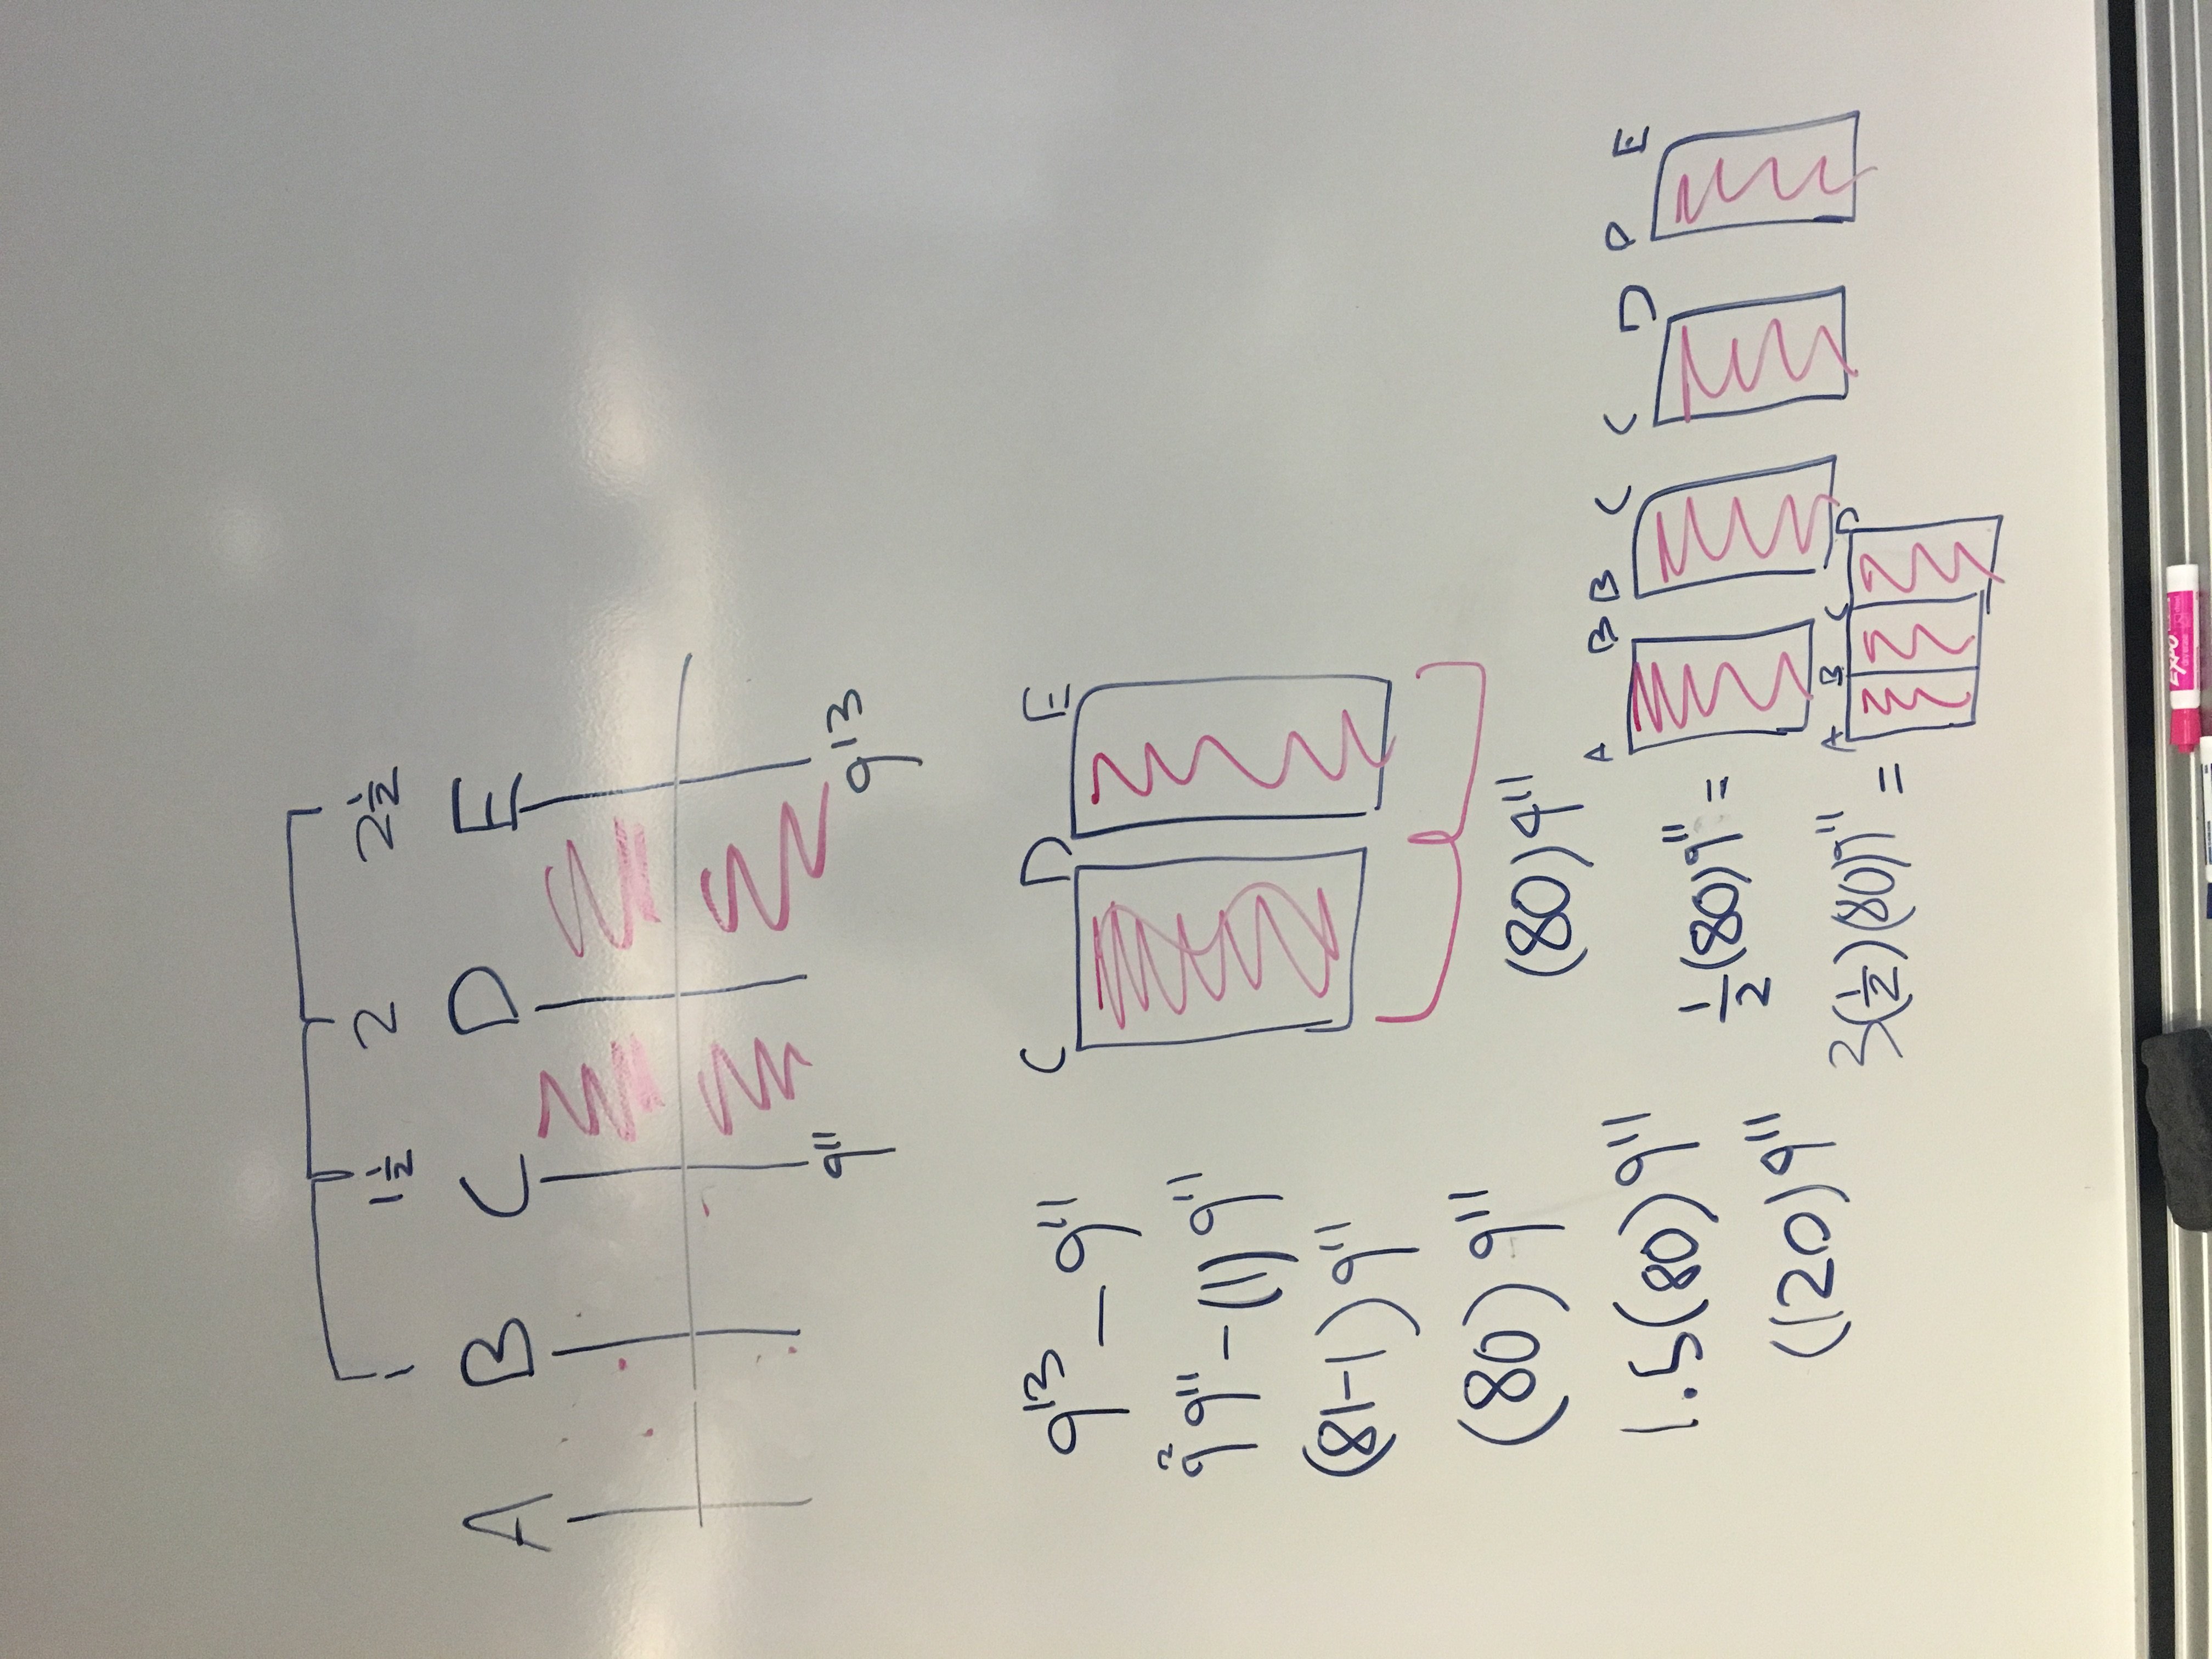 1 1½ 2 2½
A B C D E
9¹¹ 9¹³
C D E
9¹³ − 9¹¹
9² 9¹¹ − (1) 9¹¹
(81−1) 9¹¹
(80) 9¹¹
(80) 9¹¹
1.5(80) 9¹¹
(120) 9¹¹
A B B C C D D E
½(80)9¹¹ =
A B C D
3(½)(80)9¹¹ =
EXPO